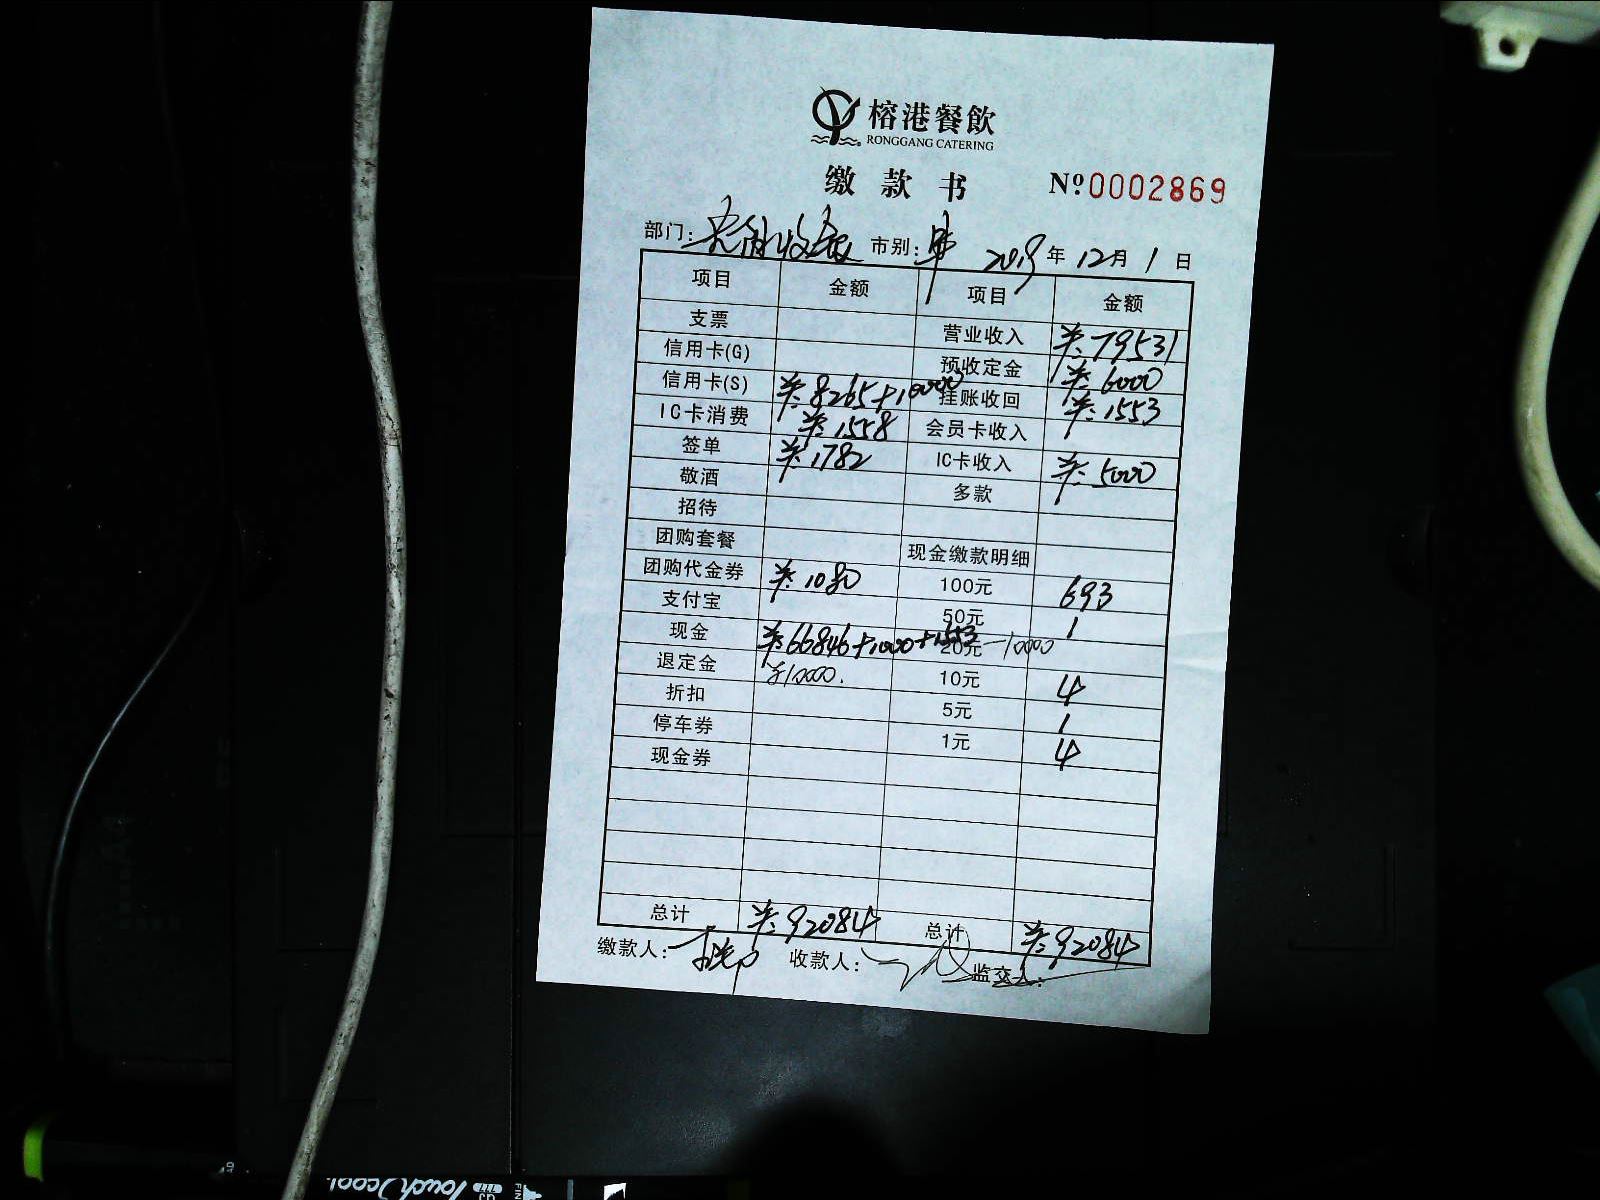 榕港餐飲
RONGGANG CATERING
缴款书 Nº0002869
部门: 市别: 2019年12月1日
项目 金额 项目 金额
支票 营业收入 ¥:79531
信用卡(G) 预收定金 ¥:6000
信用卡(S) ¥:8265+10000 挂账收回 ¥:1553
IC卡消费 ¥:1558 会员卡收入
签单 ¥:1782 IC卡收入 ¥:5000
敬酒 多款
招待
团购套餐 现金缴款明细
团购代金券 ¥:1080 100元 693
支付宝 50元 1
现金 ¥:66846+1000+1553-10000 20元
退定金 ¥10000. 10元 4
折扣 5元 1
停车券 1元 4
现金券
总计 ¥:92084 总计 ¥:92084
缴款人: 收款人: 监交人:
Touch Jcool